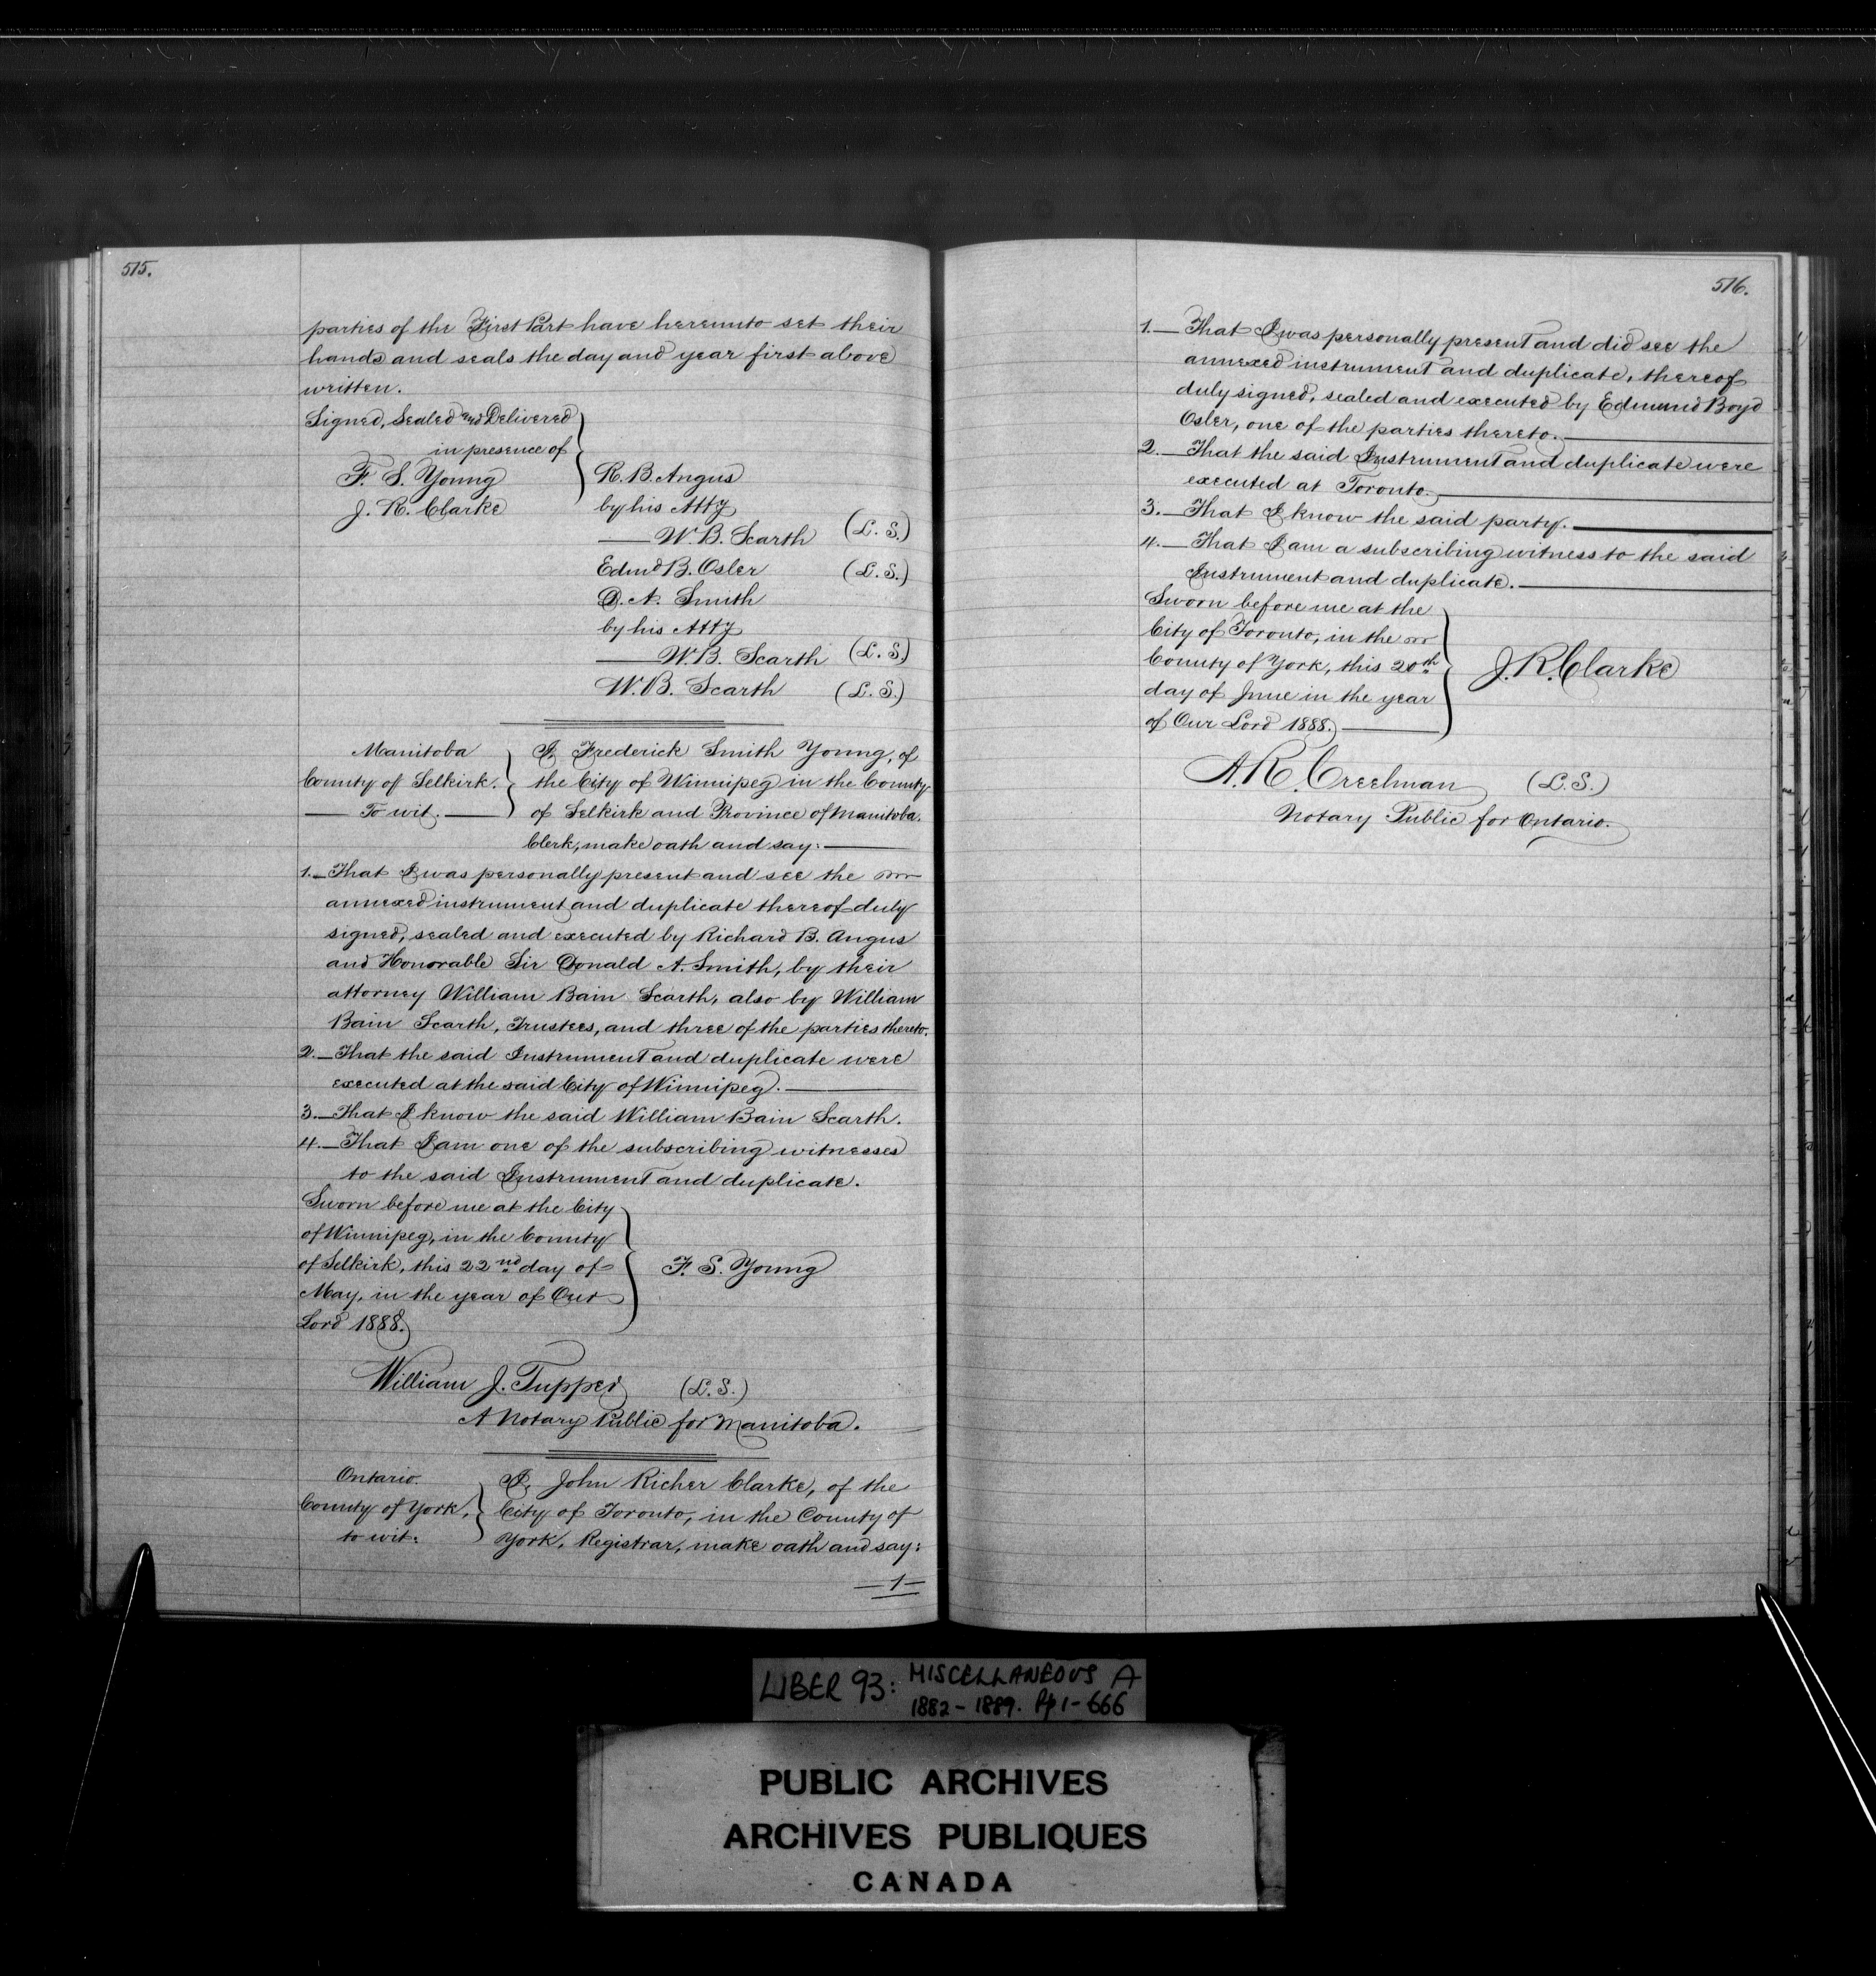 515.
parties of the First Part have hereunto set their
hands and seals the day and year first above
written.
Signed, Sealed and Delivered
in presence of
F. S. Young
J. R. Clarke
R. B. Angus
by his Atty
W. B. Scarth (L. S.)
Edmd B. Osler (L. S.)
D. A. Smith
by his Atty
W. B. Scarth (L. S.)
W. B. Scarth (L. S.)
Manitoba
County of Selkirk.
To wit.
I, Frederick Smith Young, of
the City of Winnipeg in the County
of Selkirk and Province of Manitoba.
Clerk, make oath and say:
1. That I was personally present and see the
annexed instrument and duplicate thereof duly
signed, sealed and executed by Richard B. Angus
and Honorable Sir Donald A. Smith, by their
attorney William Bain Scarth, also by William
Bain Scarth, Trustees, and three of the parties thereto.
2. That the said Instrument and duplicate were
executed at the said City of Winnipeg.
3. That I know the said William Bain Scarth.
4. That I am one of the subscribing witnesses
to the said Instrument and duplicate.
Sworn before me at the City
of Winnipeg, in the County
of Selkirk, this 22nd day of
May, in the year of Our
Lord 1888.
F. S. Young
William J. Tupper (L. S.)
A Notary Public for Manitoba.
Ontario.
County of York,
to wit:
I, John Richer Clarke, of the
City of Toronto, in the County of
York, Registrar, make oath and say:
—1—
516.
1. That I was personally present and did see the
annexed instrument and duplicate, thereof
duly signed, sealed and executed by Edmund Boyd
Osler, one of the parties thereto.
2. That the said Instrument and duplicate were
executed at Toronto.
3. That I know the said party.
4. That I am a subscribing witness to the said
Instrument and duplicate.
Sworn before me at the
City of Toronto, in the
County of York, this 20th
day of June in the year
of Our Lord 1888.
J. R. Clarke
A. R. Creelman (L. S.)
Notary Public for Ontario.
LIBER 93: MISCELLANEOUS A
1882 - 1889. Pp 1 - 666
PUBLIC ARCHIVES
ARCHIVES PUBLIQUES
CANADA